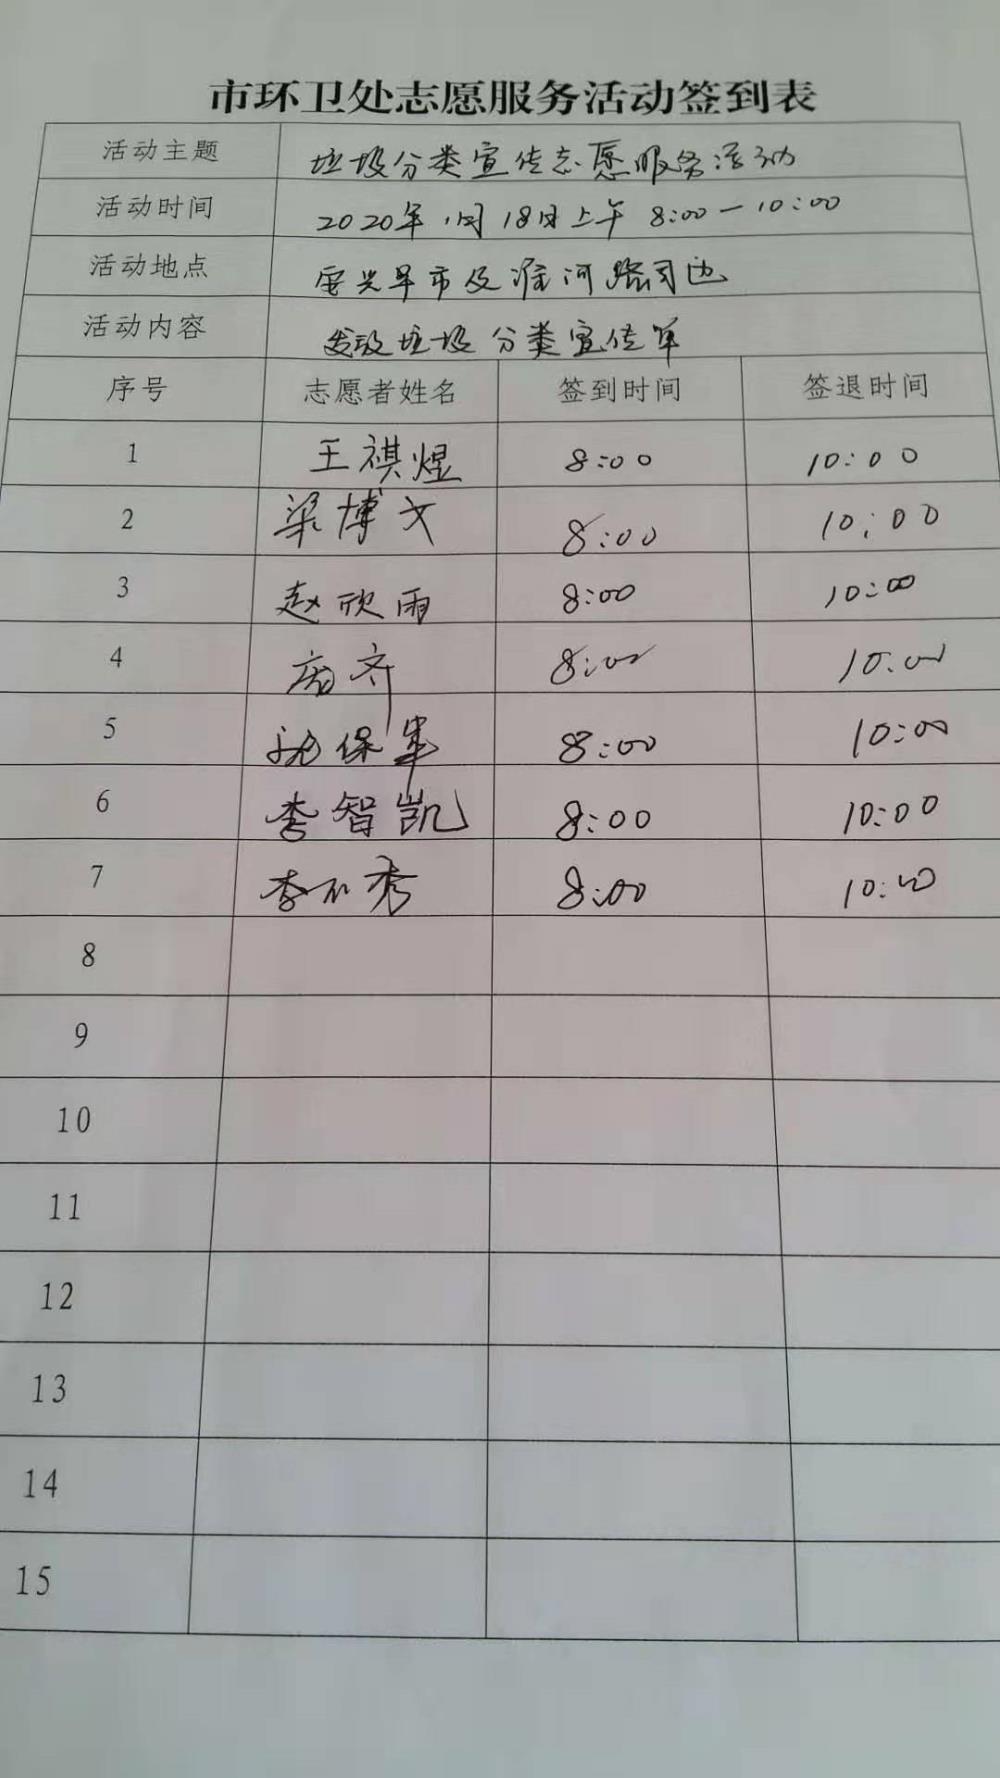 市环卫处志愿服务活动签到表
活动主题 垃圾分类宣传志愿服务活动
活动时间 2020年1月18日上午 8:00—10:00
活动地点 安兴早市及淮河路周边
活动内容 发放垃圾分类宣传单
序号 志愿者姓名 签到时间 签退时间
1 王祺煜 8:00 10:00
2 梁博文 8:00 10:00
3 赵欣雨 8:00 10:00
4 齐 8:00 10:00
5 保军 8:00 10:00
6 李智凯 8:00 10:00
7 李不秀 8:00 10:00
8
9
10
11
12
13
14
15